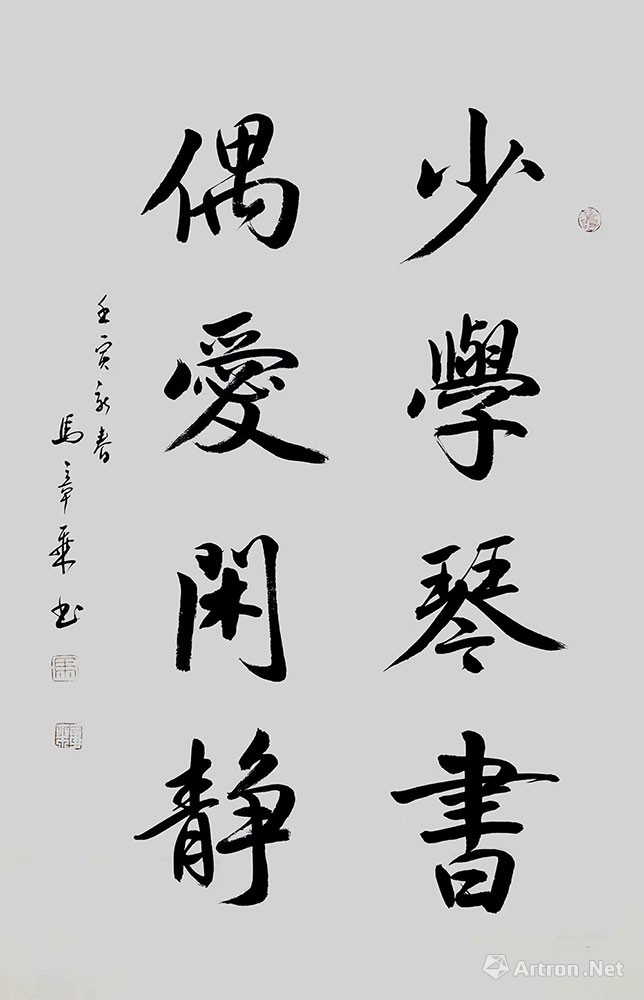 少學琴書
偶愛閑静
壬寅新春
馬章乘书
Artron.Net